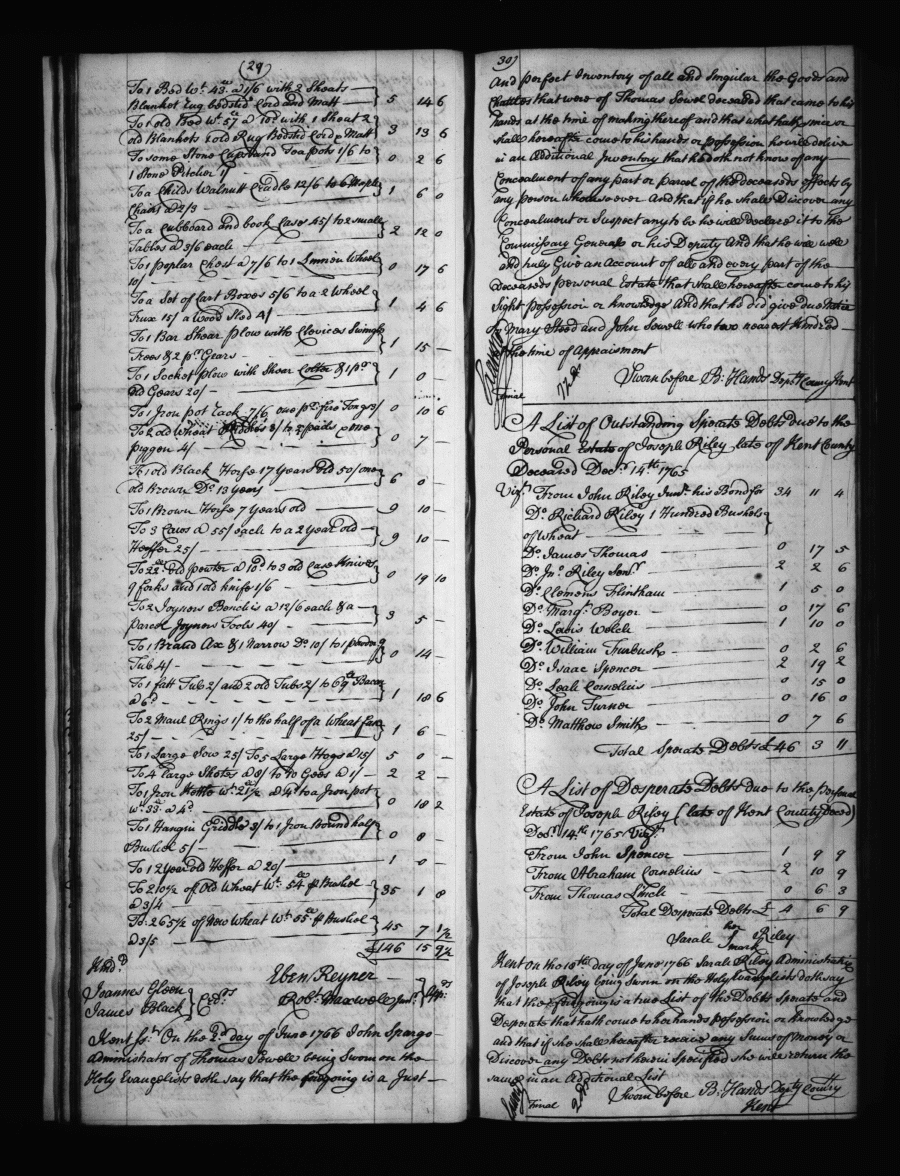 (29)
To 1 Bed Wt. 43 a 1/6 with 2 Sheats
Blanket Rug bedsted Cord and Matt — 5 14 6
To 1 old Bed Wt. 57 a 10d with 1 Sheat 2
old Blankets 1 old Rug Bedsted Cord & Matt 3 13 6
To some Stone Cups and Teapots 1/6 to
1 Stone Pitcher 1/ — 0 2 6
To a Childs Walnutt Cradle 12/6 to 6
Chairs a 2/3 — 1 6 0
To a Cubboard and book Case 45/ to 2 small
Tables a 3/6 each — 2 12 0
To 1 poplar Chest a 7/6 to 1 Linnen Wheel
10/ — 0 17 6
To a Set of Cart Boxes 5/6 to a 2 Wheel
Trux 15/ a Wood Sled 4/ 1 4 6
To 1 Bar Shear plow with Clevices Swingle
Trees & 2 pr Gears — 1 15 —
To 1 Socket plow with Shear Colter & 1 pr
old Gears 20/ — 1 0 —
To 1 Iron pot Rack 7/6 one pr. fire Tongs 3/ 0 10 6
To 2 old Wheat 3/ to 2 pails & one
piggen 4/ — 0 7 —
To 1 old Black Horse 17 Years old 50/ one
old Brown Do. 13 Years — 6 0 —
To 1 Brown Horse 7 Years old — 9 10 —
To 3 Cows a 55/ each to a 2 Year old
Heoffer 25/ — 9 10 —
To 22 old pewter a 10d to 3 old Case Knives
9 forks and 1 old knife 1/6 — 0 19 10
To 2 Joyners Benchis a 12/6 each & a
parcel Joyners Tools 40/ — 3 5 —
To 1 Broad Ax & 1 Narrow Do. 10/ to 1
Tub 4/ — 0 14 —
To 1 fatt Tub 2/ and 2 old Tubs 2/ to 69 Bacon
a 6d — 1 18 6
To 2 Maul Rings 1/ to the half of a Wheat fan
25/ — 1 6 —
To 1 Large Sow 25/ To 5 Large Hogs a 15/ 5 0 —
To 4 large Shotes a 8/ to 10 Gees a 1/ — 2 2 —
To 1 Iron Kettle wt. 21½ a 4d to a Iron pot
wt. 33 a 4d 0 18 2
To 1 Hangin Griddle 3/ to 1 Iron Bound half
Bushel 5/ — 0 8
To 1 2 Year old Heffer a 20/ — 1 0 —
To 210½ of Old Wheat Wt. 54 p Bushel
a 3/4 — 35 1 8
To 265½ of New Wheat Wt. 65 p Bushel
a 3/5 — 45 7 1½
£146 15 9½
Kind.
Joannes Gleen
James Black } Crd.rs
Eben Reyner
Robt. Maxwell Junr. } Apr.rs
Kent Sst. On the 2d. day of June 1766 John Spargo
administrator of Thomas Sewell being Sworn on the
Holy Evangelists doth say that the foregoing is a Just
30)
And perfect Inventory of all and Singular the Goods and
Chattles that were of Thomas Sewel deceased that came to his
hands at the time of making thereof and that what hath since or
shall hereafter come to his hands or possession he will deliver
in an Additional Inventory that he doth not know of any
Concealment of any part or parcel of the deceaseds effects by
any person whomsoever And that if he shall Discover any
Concealment or Suspect any to be he will declare it to the
Commissary General or his Deputy And that he will well
and truly Give an Account of all and every part of the
deceaseds personal Estate that shall hereafter come to his
Sight possession or knowledge And that he did give due Notice
to Mary Steed and John Sewell who two nearest Kindred
at the time of Appraisment
Sworn before B: Hands Depty. Comry Kent
final
A List of Outstanding Sperate Debts due to the
Personal Estate of Joseph Riley late of Kent County
Deceased Decr. 14th 1765
Vizt. From John Riley Junr. his Bond for 34 11 4
Do. Richard Riley 1 Hundred Bushels
of wheat —
Do. James Thomas — 0 17 5
Do. Jno. Riley Senr. 2 2 6
Do. Clemons Flintham — 1 5 0
Do. Margt. Boyer — 0 17 6
Do. Lewis Welch — 1 10 0
Do. William Furbush — 0 2 6
Do. Isaac Spencer — 2 19 2
Do. Leali Cornelius — 0 15 0
Do. John Turner — 0 16 0
Do. Matthew Smith — 0 7 6
Total Sperate Debts £46 3 11
A List of Desperate Debts due to the personal
Estate of Joseph Riley (late of Kent County Decd)
Decr. 14th 1765 Vizt.
From John Spencer — 1 9 9
From Abraham Cornelius — 2 10 9
From Thomas Linch — 0 6 3
Total Desperate Debts £ 4 6 9
her
Sarah S Riley
mark
Kent on the 18th day of June 1766 Sarah Riley Administratrix
of Joseph Riley being Sworn on the Holy Evangelists doth say
that the foregoing is a true List of the Debts Sperate and
Desperate that hath come to her hands possession or knowledge
and that if she shall hereafter receive any Sums of Money or
Discover any Debts not herein Specified she will return the
same in an Additional List
Sworn before B: Hands Depty County
Kent
final